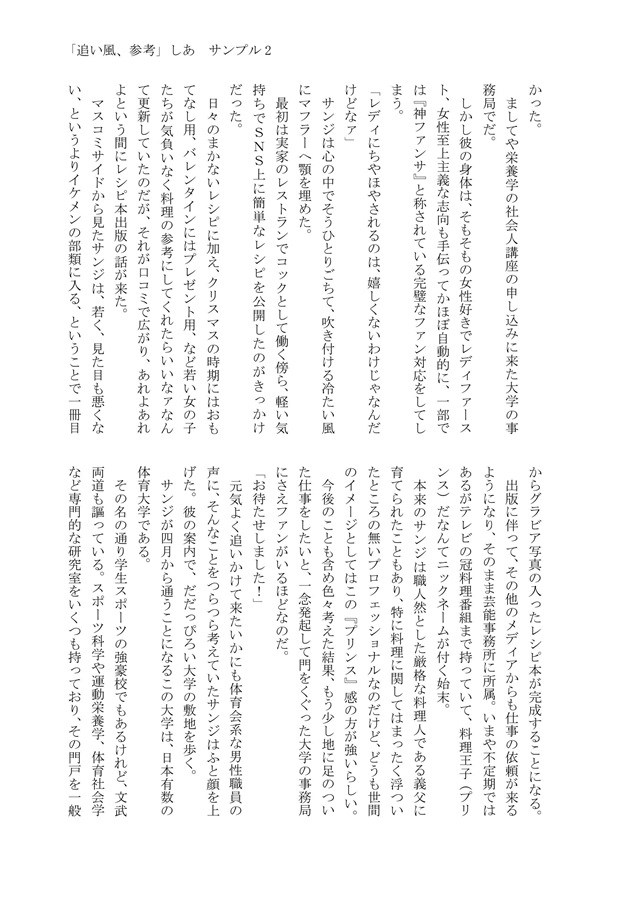 「追い風、参考」しあ　サンプル２
かった。
　ましてや栄養学の社会人講座の申し込みに来た大学の事
務局でだ。
　しかし彼の身体は、そもそもの女性好きでレディファース
ト、女性至上主義な志向も手伝ってかほぼ自動的に、一部で
は『神ファンサ』と称されている完璧なファン対応をしてし
まう。
「レディにちやほやされるのは、嬉しくないわけじゃなんだ
けどなァ」
　サンジは心の中でそうひとりごちて、吹き付ける冷たい風
にマフラーへ顎を埋めた。
　最初は実家のレストランでコックとして働く傍ら、軽い気
持ちでＳＮＳ上に簡単なレシピを公開したのがきっかけ
だった。
　日々のまかないレシピに加え、クリスマスの時期にはおも
てなし用、バレンタインにはプレゼント用、など若い女の子
たちが気負いなく料理の参考にしてくれたらいいなァなん
て更新していたのだが、それが口コミで広がり、あれよあれ
よという間にレシピ本出版の話が来た。
　マスコミサイドから見たサンジは、若く、見た目も悪くな
い、というよりイケメンの部類に入る、ということで一冊目
からグラビア写真の入ったレシピ本が完成することになる。
　出版に伴って、その他のメディアからも仕事の依頼が来る
ようになり、そのまま芸能事務所に所属。いまや不定期では
あるがテレビの冠料理番組まで持っていて、料理王子（プリ
ンス）だなんてニックネームが付く始末。
　本来のサンジは職人然とした厳格な料理人である義父に
育てられたこともあり、特に料理に関してはまったく浮つい
たところの無いプロフェッショナルなのだけど、どうも世間
のイメージとしてはこの『プリンス』感の方が強いらしい。
　今後のことも含め色々考えた結果、もう少し地に足のつい
た仕事をしたいと、一念発起して門をくぐった大学の事務局
にさえファンがいるほどなのだ。
「お待たせしました！」
　元気よく追いかけて来たいかにも体育会系な男性職員の
声に、そんなことをつらつら考えていたサンジはふと顔を上
げた。彼の案内で、だだっぴろい大学の敷地を歩く。
　サンジが四月から通うことになるこの大学は、日本有数の
体育大学である。
　その名の通り学生スポーツの強豪校でもあるけれど、文武
両道も謳っている。スポーツ科学や運動栄養学、体育社会学
など専門的な研究室をいくつも持っており、その門戸を一般